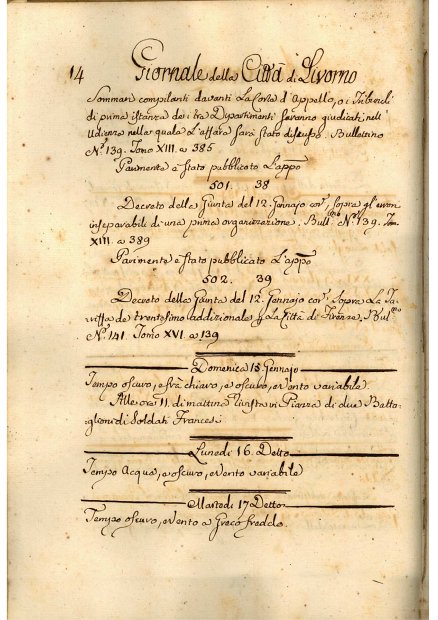 14 Giornale della Città di Livorno
Sommari compilanti davanti La Corte d'Appello, o i Tribunali
di prima istanza dei tre Dipartimenti saranno giudicati nell'
Udienza nella quale L'affare sarà stato discusso. Bullettino
N.º 139. Tomo XIII. a 385
Parimente è stato pubblicato L'appo
501. 38
Decreto della Giunta del 12. Gennajo cor., sopra gl'errori
inseparabili di una prima organizazione. Bull.no N.º 139. Tom.
XIII. a 389
Parimente è stato pubblicato L'appo
502. 39
Decreto della Giunta del 12. Gennajo cor. Sopra La Ta-
riffa de trentesimo addizionale p La Città di Firenze, Bull.no
N.º 141. Tomo XVI. a 139
Domenica 15 Gennajo
Tempo oscuro, e frà chiaro, e oscuro, e Vento variabile.
Alle ore 11. di mattina in Piazza di due Batta-
glioni di Soldati Francesi
Lunedi 16. Detto
Tempo Acqua, e oscuro, e Vento variabile
Martedi 17 Detto
Tempo oscuro, e Vento a Greco freddo.